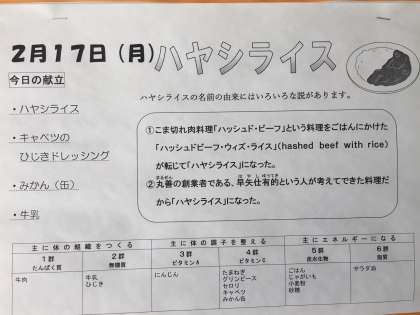 2月17日（月）ハヤシライス
今日の献立
・ハヤシライス
・キャベツの
ひじきドレッシング
・みかん（缶）
・牛乳
ハヤシライスの名前の由来にはいろいろな説があります。
①こま切れ肉料理「ハッシュド・ビーフ」という料理をごはんにかけた
「ハッシュドビーフ・ウィズ・ライス」(hashed beef with rice)
が転じて「ハヤシライス」になった。
②丸善の創業者である、早矢仕有的という人が考えてできた料理だ
から「ハヤシライス」になった。
主に体の組織をつくる 主に体の調子を整える 主にエネルギーになる
1群 2群 3群 4群 5群 6群
たんぱく質 無機質 ビタミンA ビタミンC 炭水化物 脂質
牛肉 牛乳 にんじん たまねぎ ごはん サラダ油
ひじき グリンピース じゃがいも
セロリ 小麦粉
キャベツ 砂糖
みかん缶